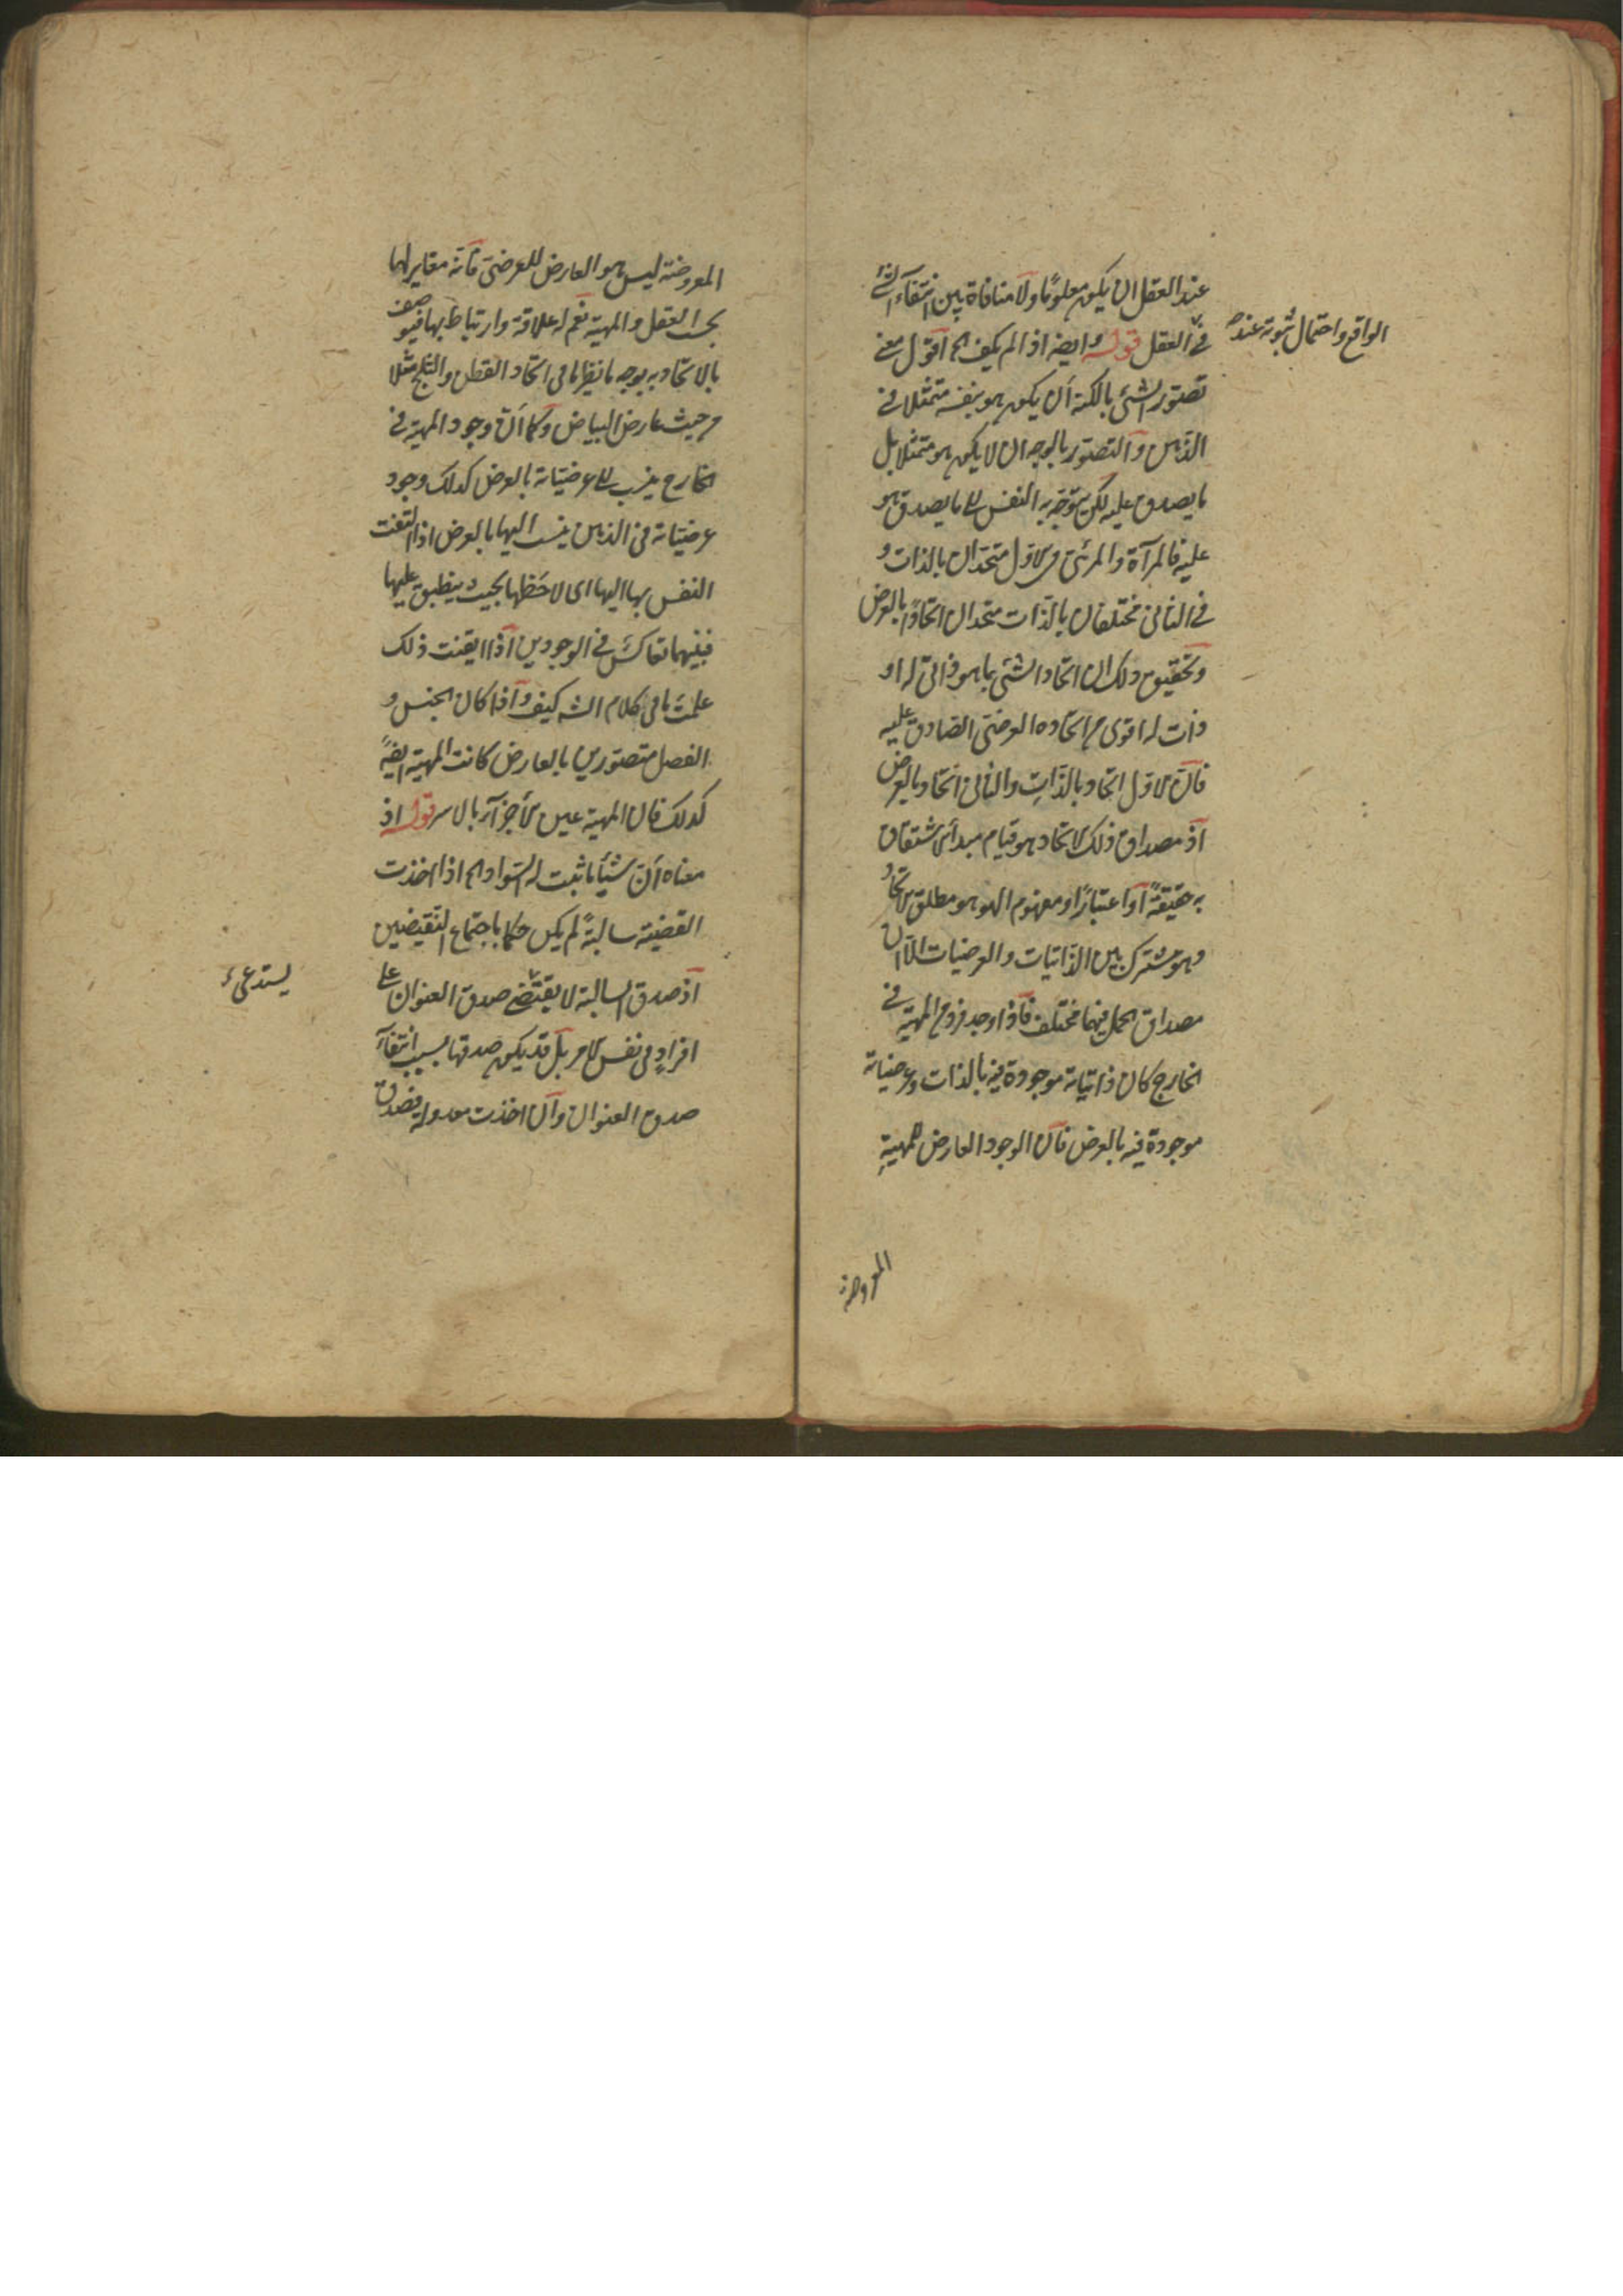 عند العقل ان يكون معلومًا ولا منافاة بين انتفآء الشئ
فى العقل قوله وايضا اذا لم يكف الخ اقول معنى
الواقع واحتمال ثبوته عنده
تصتور الشئ بالكنه ان يكون هو بنفسه متمثلا فى
الذهن والتصتور بالوجه ان لا يكون هو متمثلا بل
ما يصدق عليه لكن يتوجّه به النفس الى ما يصدق هو
عليه فالمرآة والمرئى فى الاوّل متحدان بالذات و
فى الثانى مختلفان بالذات متحدان اتحادًا بالعرض
وتحقيق ذلك ان اتحاد الشئ بما هو ذاتى له او
ذات له اقوى من اتحاده العرضى الصادق عليه
فان الاوّل اتحاد بالذات والثانى اتحاد بالعرض
اذ مصداق ذلك الاتحاد هو قيام مبدأ الاشتقاق
به حقيقةً او اعتبارًا ومفهوم الهوهو مطلق الاتحاد
وهو مشترك بين الذاتيات والعرضيات الا ان
مصداق الحمل فيهما مختلف فاذا وجد فرد من المهية فى
الخارج كان ذاتياته موجودة فيه بالذات وعرضياته
موجودة فيه بالعرض فان الوجود العارض للمهيةِ
المعروضة
المعروضة ليس هو العارض للعرضى فانه مغاير لها
بحسب العقل والمهية نعم له علاقة وارتباط بها فيوصف
بالاتحاد به بوجه ما نظير ما فى اتحاد القطن والثلج مثلا
من حيث عارض البياض وكما ان وجود المهية فى
الخارج ينسب الى عرضياته بالعرض كذلك وجود
عرضياته فى الذهن ينسب اليها بالعرض اذا التفتت
النفس بها اليها اى لاحظها بحيث ينطبق عليها
فبينهما تعاكس فى الوجودين اذا ايقنت ذلك
علمت ما فى كلام الشه كيف واذا كان الجنس و
الفصل متصتورين بالعارض كانت المهية ايضًا
كذلك فان المهية عين الاجزآء بالاسر قوله اذ
معناه ان شيأ ما ثبت له السواد الخ اذا اخذت
القضية سالبةً لم يكن حكما باجتماع النقيضين
اذ صدق السالبة لا يقتضى صدق العنوان على
يستدعى
افرادٍ فى نفس الامر بل قد يكون صدقها بسبب انتفآء
صدق العنوان وان اخذت معدولة فصدق